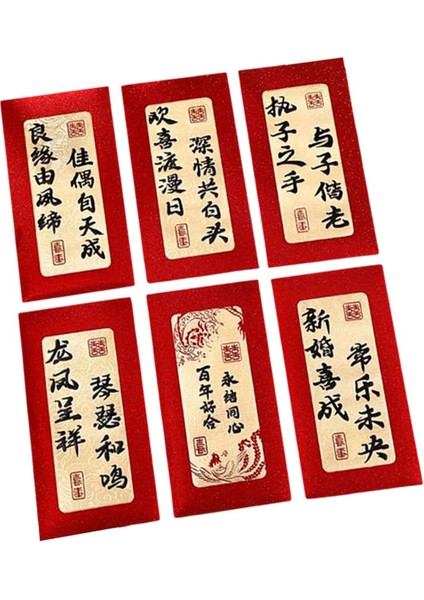 良缘由夙缔
佳偶自天成
囍
欢喜渡漫日
深情共白头
囍
执子之手
与子偕老
囍
龙凤呈祥
琴瑟和鸣
囍
百年好合
永结同心
囍
新婚喜成
常乐未央
囍